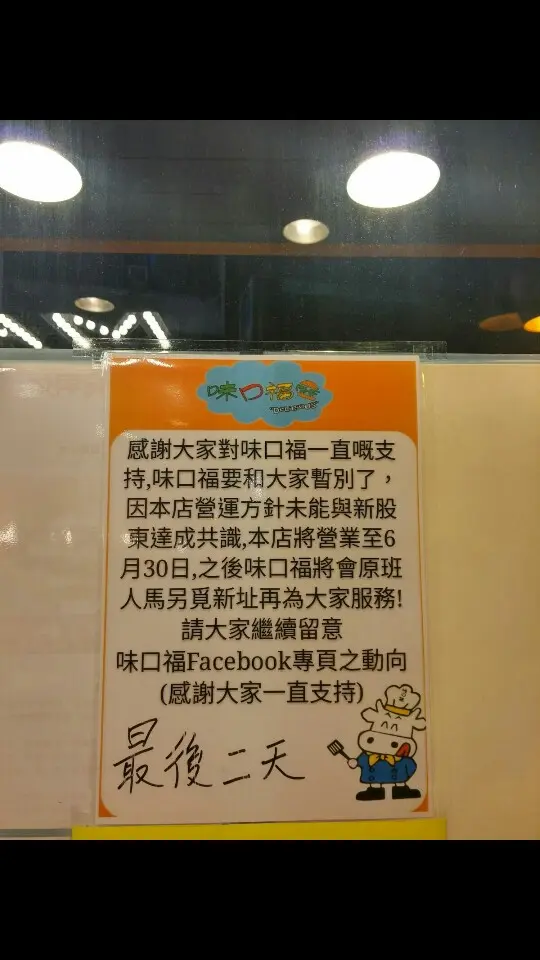 味口福
"DELICIOUS"
感謝大家對味口福一直嘅支
持,味口福要和大家暫別了，
因本店營運方針未能與新股
東達成共識,本店將營業至6
月30日,之後味口福將會原班
人馬另覓新址再為大家服務!
請大家繼續留意
味口福Facebook專頁之動向
(感謝大家一直支持)
最後二天